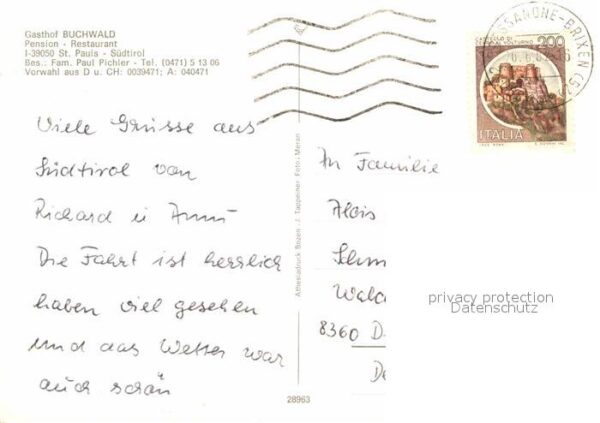 Gasthof BUCHWALD
Pension - Restaurant
I-39050 St. Pauls - Südtirol
Bes.: Fam. Paul Pichler - Tel. (0471) 5 13 06
Vorwahl aus D u. CH: 0039471; A: 040471
Viele Grüsse aus
Südtirol von
Richard u
Die Fahrt ist herrlich
haben viel gesehen
und das Wetter war
auch schön
Athesiadruck Bozen - J. Tappeiner Foto - Meran
28963
BRESSANONE-BRIXEN
CASTELLO DI
200
ITALIA
An Familie
Alois
Schm
Wald
8360 D
De
privacy protection
Datenschutz